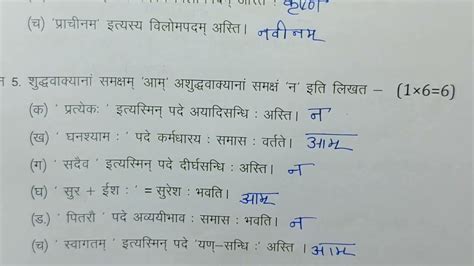 (च) 'प्राचीनम' इत्यस्य विलोमपदम् अस्ति। नवीनम्
5. शुद्धवाक्यानां समक्षम् 'आम्' अशुद्धवाक्यानां समक्षं 'न' इति लिखत – (1×6=6)
(क) ' प्रत्येकः ' इत्यस्मिन् पदे अयादिसन्धि : अस्ति। न
(ख) ' घनश्याम : ' पदे कर्मधारय : समास : वर्तते। आम्
(ग) ' सदैव ' इत्यस्मिन् पदे दीर्घसन्धि : अस्ति। न
(घ) ' सुर + ईश : ' = सुरेश : भवति। आम्
(ड.) ' पितरौ ' पदे अव्ययीभाव : समास : भवति। न
(च) ' स्वागतम् ' इत्यस्मिन् पदे 'यण्-सन्धि :' अस्ति । आम्